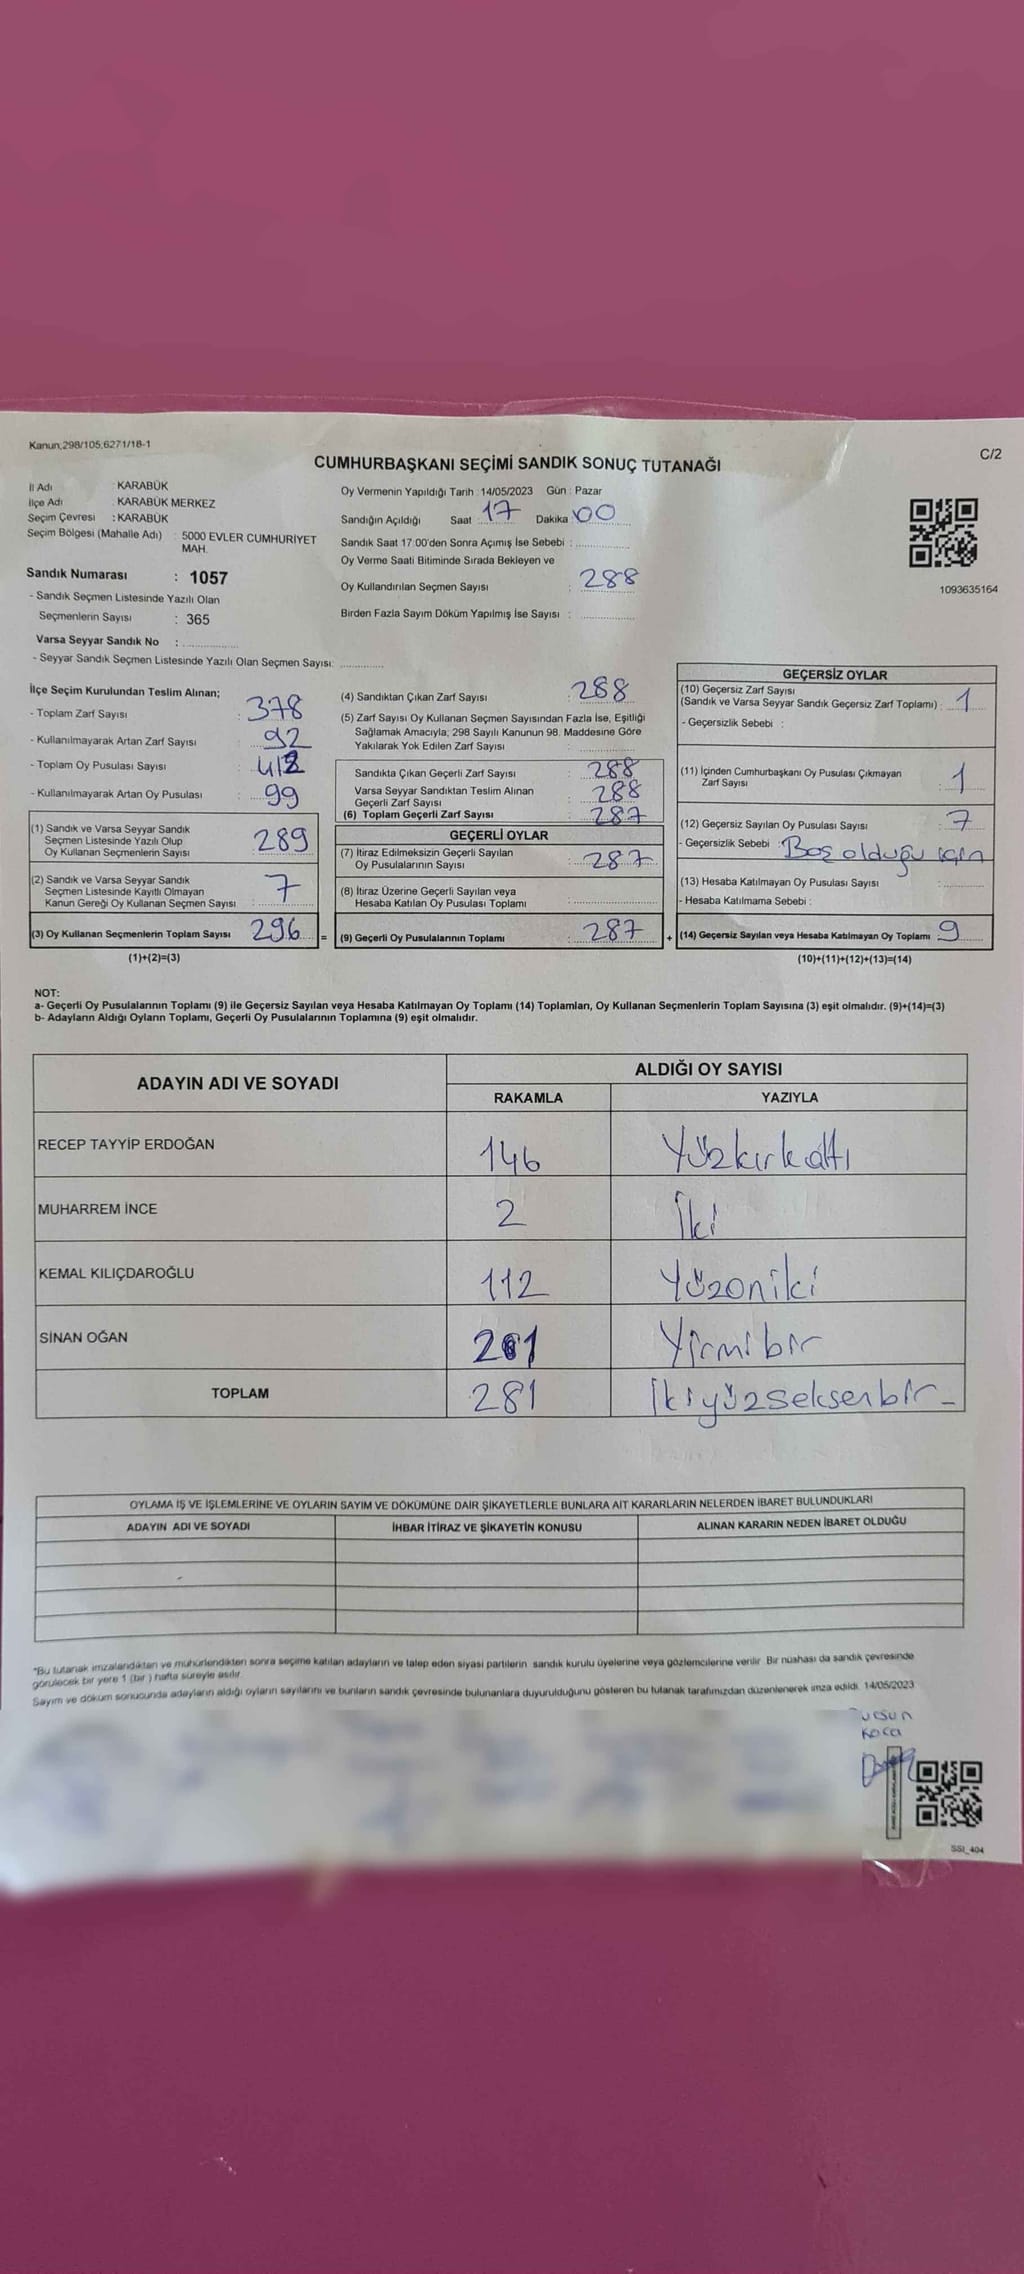 Kanun;298/105,6271/18-1
C/2
CUMHURBAŞKANI SEÇİMİ SANDIK SONUÇ TUTANAĞI
İl Adı : KARABÜK
İlçe Adı : KARABÜK MERKEZ
Seçim Çevresi : KARABÜK
Seçim Bölgesi (Mahalle Adı) : 5000 EVLER CUMHURİYET
MAH.
Sandık Numarası : 1057
- Sandık Seçmen Listesinde Yazılı Olan
Seçmenlerin Sayısı : 365
Varsa Seyyar Sandık No :
- Seyyar Sandık Seçmen Listesinde Yazılı Olan Seçmen Sayısı:
Oy Vermenin Yapıldığı Tarih : 14/05/2023 Gün : Pazar
Sandığın Açıldığı Saat 17 Dakika 00
Sandık Saat 17:00'den Sonra Açımış İse Sebebi :
Oy Verme Saati Bitiminde Sırada Bekleyen ve
Oy Kullandırılan Seçmen Sayısı : 288
Birden Fazla Sayım Döküm Yapılmış İse Sayısı :
1093635164
İlçe Seçim Kurulundan Teslim Alınan;
- Toplam Zarf Sayısı : 378
- Kullanılmayarak Artan Zarf Sayısı : 92
- Toplam Oy Pusulası Sayısı :
- Kullanılmayarak Artan Oy Pusulası : 99
(1) Sandık ve Varsa Seyyar Sandık
Seçmen Listesinde Yazılı Olup
Oy Kullanan Seçmenlerin Sayısı : 289
(2) Sandık ve Varsa Seyyar Sandık
Seçmen Listesinde Kayıtlı Olmayan
Kanun Gereği Oy Kullanan Seçmen Sayısı : 7
(3) Oy Kullanan Seçmenlerin Toplam Sayısı 296 =
(1)+(2)=(3)
(4) Sandıktan Çıkan Zarf Sayısı : 288
(5) Zarf Sayısı Oy Kullanan Seçmen Sayısından Fazla İse, Eşitliği
Sağlamak Amacıyla; 298 Sayılı Kanunun 98. Maddesine Göre
Yakılarak Yok Edilen Zarf Sayısı :
Sandıkta Çıkan Geçerli Zarf Sayısı : 288
Varsa Seyyar Sandıktan Teslim Alınan
Geçerli Zarf Sayısı : 288
(6) Toplam Geçerli Zarf Sayısı : 287
GEÇERLİ OYLAR
(7) İtiraz Edilmeksizin Geçerli Sayılan
Oy Pusulalarının Sayısı : 287
(8) İtiraz Üzerine Geçerli Sayılan veya
Hesaba Katılan Oy Pusulası Toplamı :
(9) Geçerli Oy Pusulalarının Toplamı : 287 +
GEÇERSİZ OYLAR
(10) Geçersiz Zarf Sayısı
(Sandık ve Varsa Seyyar Sandık Geçersiz Zarf Toplamı) : 1
- Geçersizlik Sebebi :
(11) İçinden Cumhurbaşkanı Oy Pusulası Çıkmayan
Zarf Sayısı : 1
(12) Geçersiz Sayılan Oy Pusulası Sayısı : 7
- Geçersizlik Sebebi : Boş olduğu için
(13) Hesaba Katılmayan Oy Pusulası Sayısı :
- Hesaba Katılmama Sebebi :
(14) Geçersiz Sayılan veya Hesaba Katılmayan Oy Toplamı 9
(10)+(11)+(12)+(13)=(14)
NOT:
a- Geçerli Oy Pusulalarının Toplamı (9) ile Geçersiz Sayılan veya Hesaba Katılmayan Oy Toplamı (14) Toplamları, Oy Kullanan Seçmenlerin Toplam Sayısına (3) eşit olmalıdır. (9)+(14)=(3)
b- Adayların Aldığı Oyların Toplamı, Geçerli Oy Pusulalarının Toplamına (9) eşit olmalıdır.
ADAYIN ADI VE SOYADI
ALDIĞI OY SAYISI
RAKAMLA YAZIYLA
RECEP TAYYİP ERDOĞAN 146 Yüzkırkaltı
MUHARREM İNCE 2 İki
KEMAL KILIÇDAROĞLU 112 Yüzoniki
SİNAN OĞAN Yirmibir
TOPLAM 281 İkiyüzseksenbir-
OYLAMA İŞ VE İŞLEMLERİNE VE OYLARIN SAYIM VE DÖKÜMÜNE DAİR ŞİKAYETLERLE BUNLARA AİT KARARLARIN NELERDEN İBARET BULUNDUKLARI
ADAYIN ADI VE SOYADI İHBAR İTİRAZ VE ŞİKAYETİN KONUSU ALINAN KARARIN NEDEN İBARET OLDUĞU
"Bu tutanak imzalandıktan ve mühürlendikten sonra seçime katılan adayların ve talep eden siyasi partilerin sandık kurulu üyelerine veya gözlemcilerine verilir. Bir nüshası da sandık çevresinde
görülecek bir yere 1 (bir ) hafta süreyle asılır.
Sayım ve döküm sonucunda adayların aldığı oyların sayılarını ve bunların sandık çevresinde bulunanlara duyurulduğunu gösteren bu tutanak tarafımızdan düzenlenerek imza edildi. 14/05/2023
Koca
SSI_404